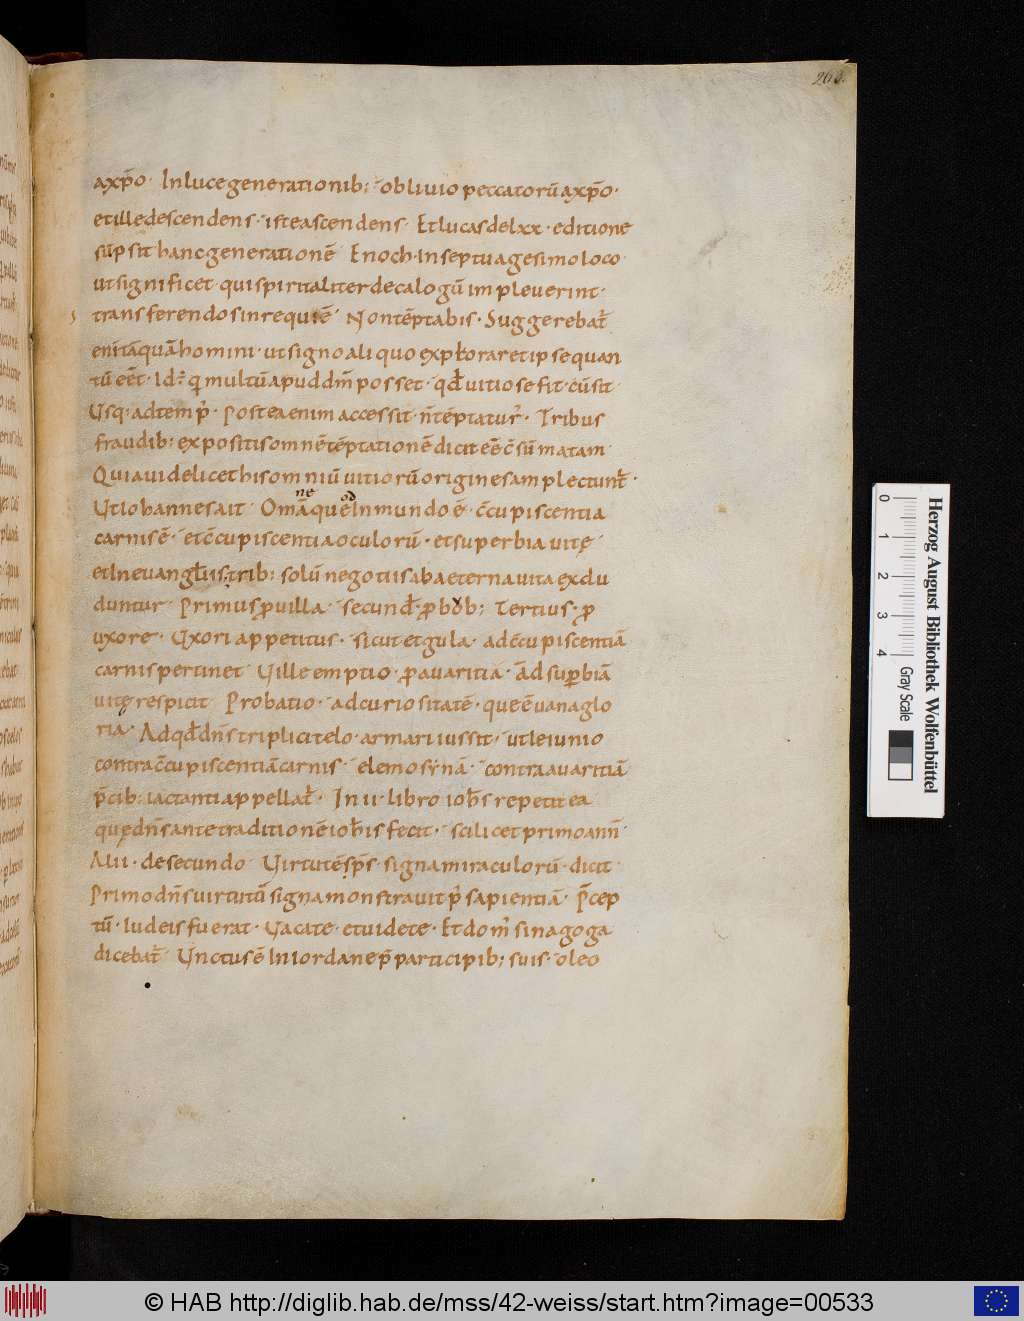 263.
axp̄o· In luce generationib; · oblivio peccatorū axp̄o·
et ille descendens · iste ascendens · Et lucas de lxx · editione
sūpsit hanc generationē Enoch · In septuagesimo loco
ut significet · qui spiritaliter decalogū impleverint ·
transferendos in requiē Non tēptabis · Suggerebat̄
eni tāquā homini · ut signo aliquo explorar& ipse quan
multū apud dm̄ posset · qđ vitiose fit · cū sit
Usq· ad temp᷒ · Postea enim accessit · n̄ tēptatur᷒ · Tribus
fraudib; expositis omnē tēptationē dicit eē c̄sūmatam
Quia videlicet his omniū vitiorū origines amplectunt̄ ·
Ut Iohannes ait Omā quę In mundo ē · c̄cupiscentia
ne od
carnis ē · et c̄cupiscentia oculorū · et superbia vitę
et In evanḡliis trib; solū negotiis ab aeterna vita exclu
duntur Primus p̱ villa · secund̄ · p̱ bovb; Tertius · p̱
uxore · Uxori appetitus · sicut et gula · ad c̄cupiscentiā
carnis pertinet Ville emptio · p̱ avaritia · Ad sup̱biā
vitę respicit Probatio · ad curiositatē · quę ē vana glo
ria · Ad qđ dn̄s triplici telo · armari iussit · ut ieiunio
contra c̄cupiscentiā carnis · elemosynā · contra avaritiā
p̄cib; iactanti appellat̄ · In ii · libro ioh̄s repetit ea
quę dn̄s ante traditionē ioh̄is fecit · scilicet primo ann̄
Alii · de secundo Virtutē sp̄s · signa miraculorū · dicit
Primo dn̄s virtutū signa monstravit p᷒ sapientiā · P̄cep
tū · Iudeis fuerat · Vacate · et videte · Et dom᷒ sinagoga
dicebat̄ Unctus ē In Iordane p̄ participib; suis · oleo
0 1 2 3 4
Herzog August Bibliothek Wolfenbüttel
Gray Scale
© HAB http://diglib.hab.de/mss/42-weiss/start.htm?image=00533